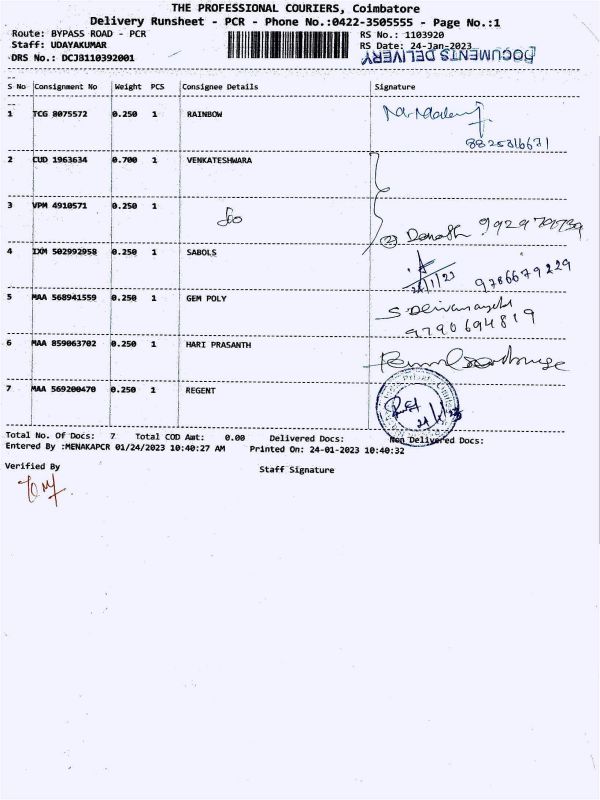 THE PROFESSIONAL COURIERS, Coimbatore
Delivery Runsheet - PCR - Phone No.:0422-3505555 - Page No.:1
Route: BYPASS ROAD - PCR
RS No.: 1103920
Staff: UDAYAKUMAR
RS Date: 24-Jan-2023
DRS No.: DCJB110392001
DOCUMENTS DELIVERY
S No Consignment No Weight PCS Consignee Details Signature
1 TCG 8075572 0.250 1 RAINBOW
8825816671
2 CUD 1963634 0.700 1 VENKATESHWARA
3 VPM 4910571 0.250 1
9929791739
4 IXM 502992958 0.250 1 SABOLS
24/1/23 9786679229
5 MAA 568941559 0.250 1 GEM POLY
9790694819
6 MAA 859063702 0.250 1 HARI PRASANTH
7 MAA 569200470 0.250 1 REGENT
Total No. Of Docs: 7 Total COD Amt: 0.00 Delivered Docs: Non Delivered Docs:
Entered By :MENAKAPCR 01/24/2023 10:40:27 AM Printed On: 24-01-2023 10:40:32
Verified By
Staff Signature